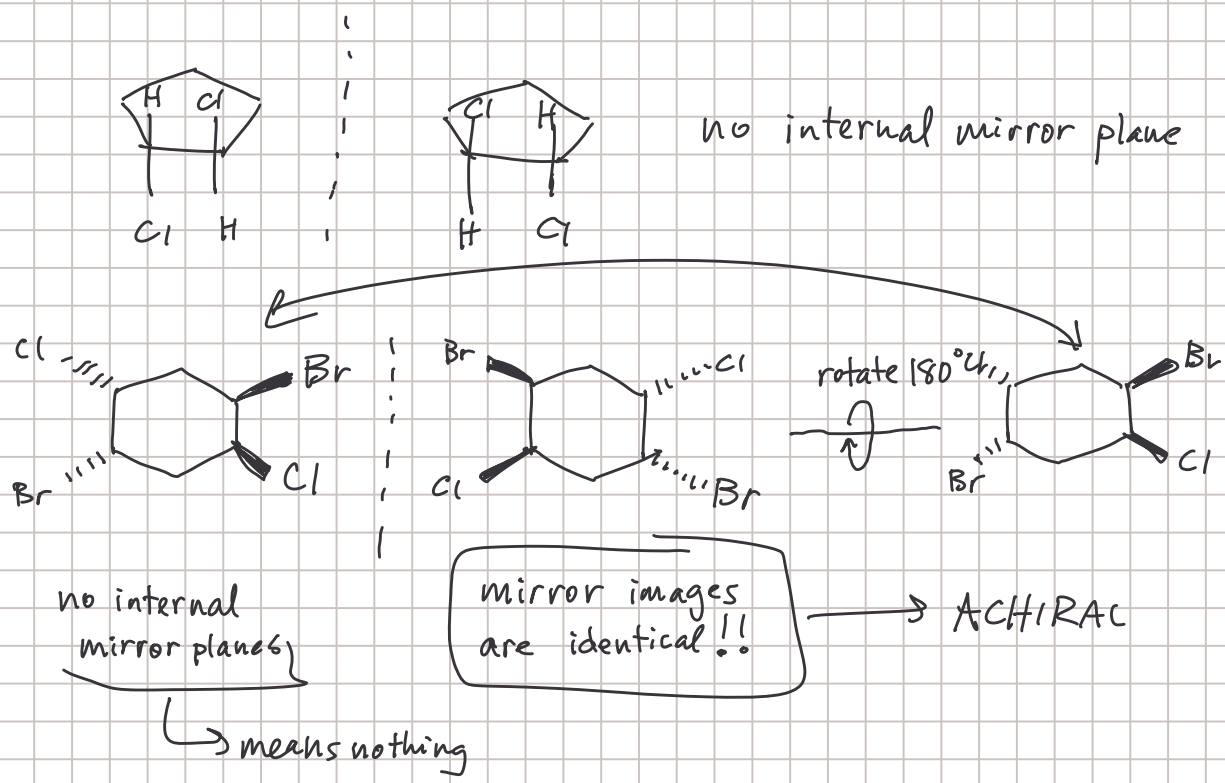 H Cl
Cl H
Cl H
H Cl
no internal mirror plane
Cl Br
Br Cl
Br Cl
Cl Br
rotate 180°
Cl Br
Br Cl
no internal
mirror planes
means nothing
mirror images
are identical!!
ACHIRAL